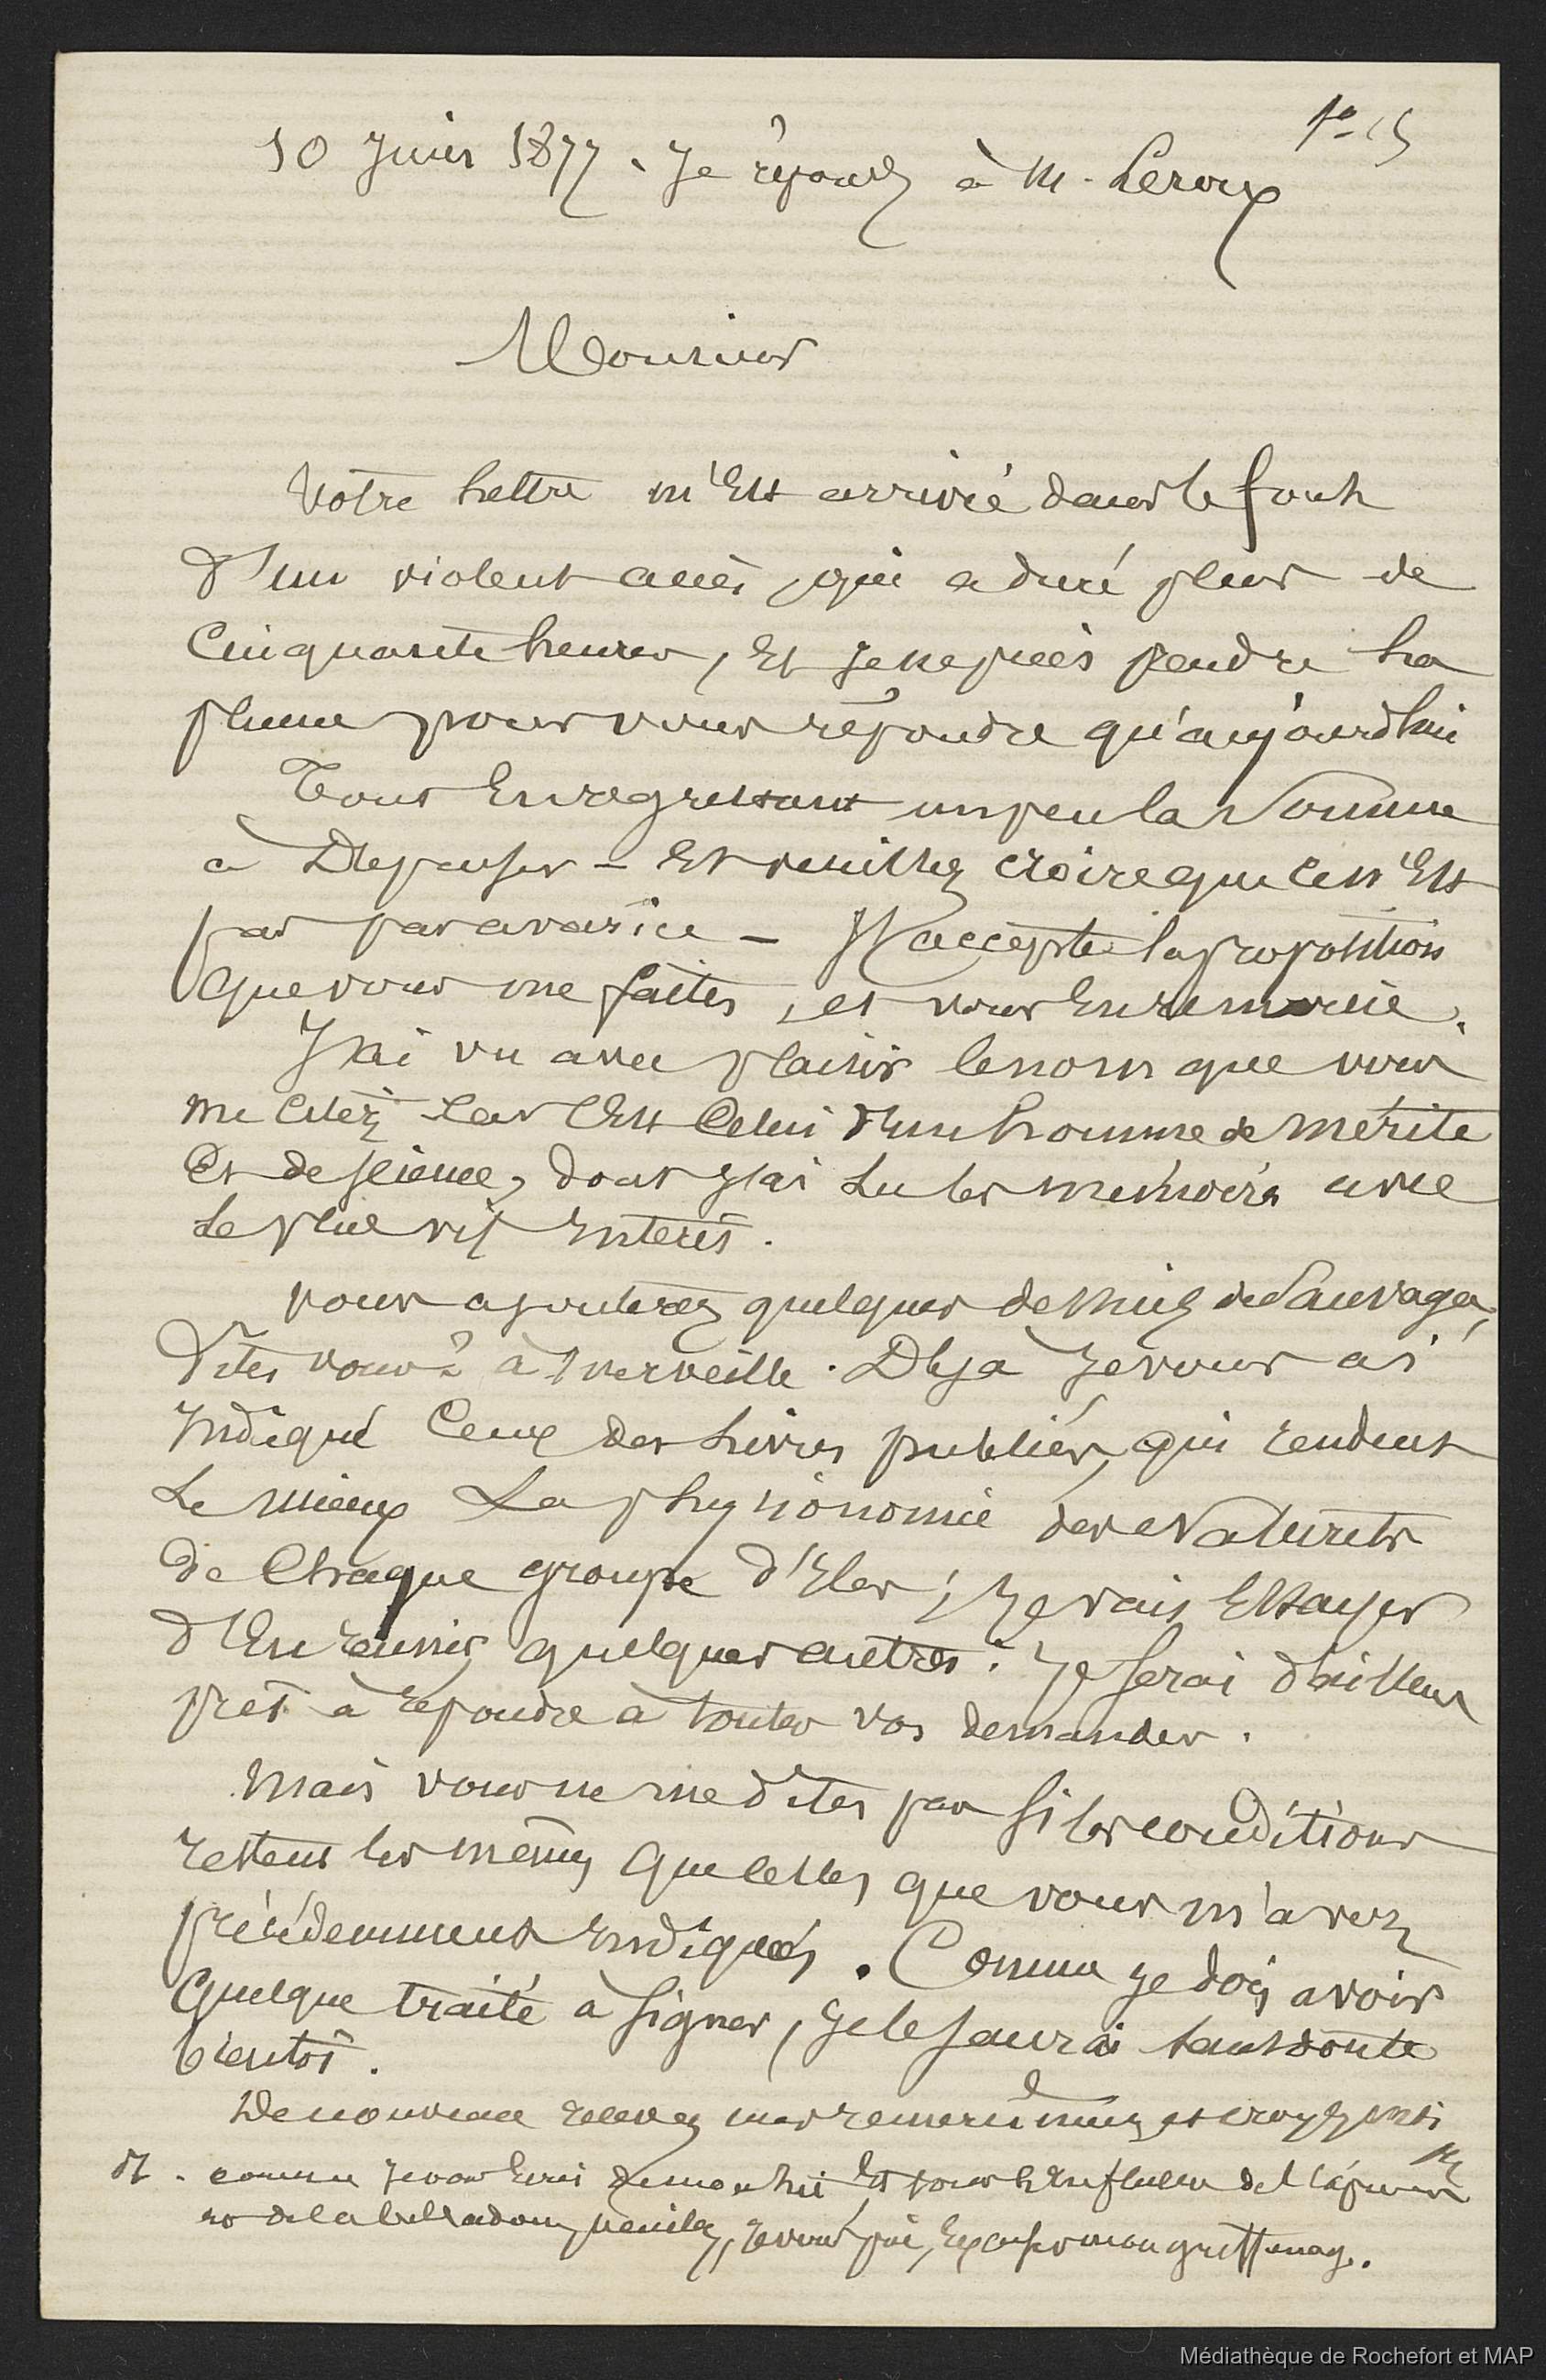 10 Juin 1877. Je réponds à M. Leroux
Monsieur
Votre lettre m'est arrivée dans le fort
d'un violent accès, qui a duré plus de
Cinquante heures, Et je ne puis prendre la
plume pour vous répondre qu'aujourdhui
Tout En regrettant un peu la somme
à Depenser - Et veuillez croire que ce n'Est
pas par avarice - J'accepte la proposition
que vous me faites, et vous En remercie.
J'ai vu avec plaisir le nom que vous
me citez car C'Est Celui d'un homme de mérite
Et de science, dont j'ai Lu les mémoires avec
Le plus vif interêt.
vous ajouterez quelques dessins de Sauvages,
dites vous : à merveille. Déjà je vous ai
indiqué Ceux des livres publiés, qui rendent
Le mieux La physionomie des Naturels
de Chaque groupe d'Iles ; je vais Essayer
d'En réunir quelques autres. Je serai d'ailleurs
prêt à répondre à toutes vos demandes.
Mais vous ne me dites pas si les conditions
restent les mêmes que celles que vous m'avez
précédemment indiquées. Comme je dois avoir
quelque traité à signer, je le saurai sans doute
bientôt.
De nouveau recevez mes remerciments et croyez moi
comme je vous Ecris de mon lit Et sous l'Influence de
de la belladone, veuillez, je vous prie, Excuser mon griffonnage.
Médiathèque de Rochefort et MAP